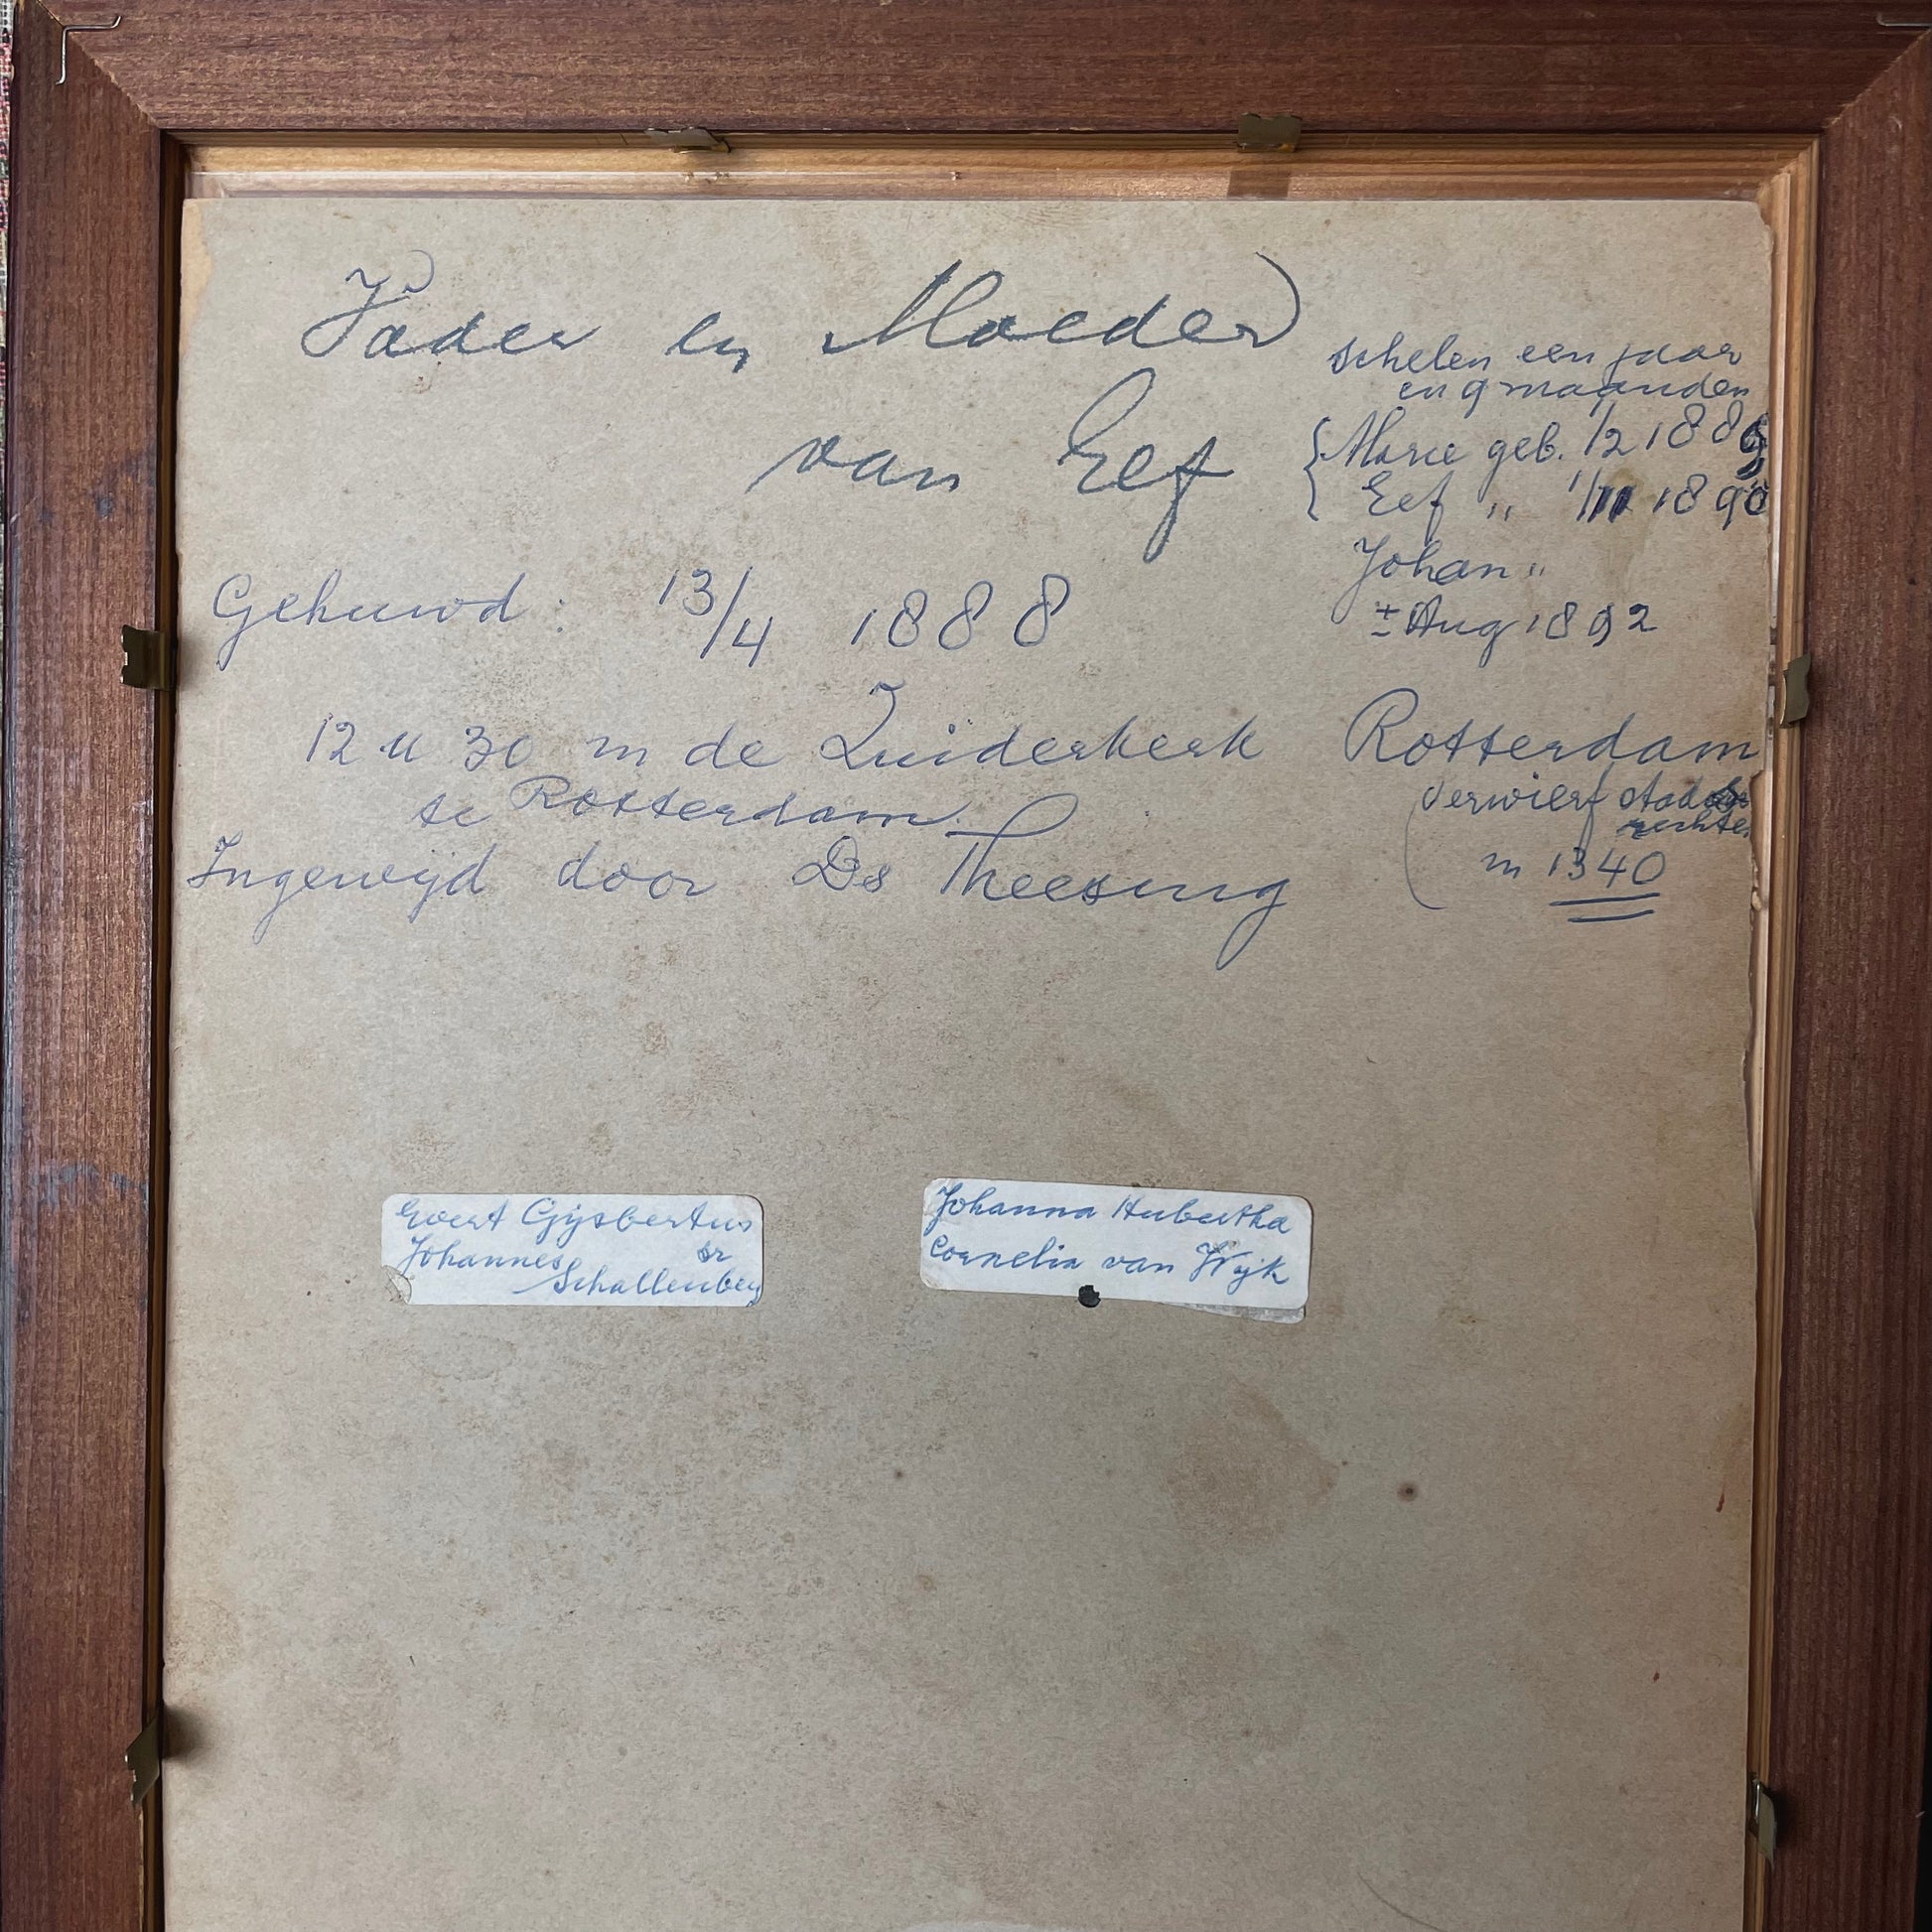 Vader en Moeder
van Eef
schelen een jaar
en 9 maanden
{ Marie geb. 1/2 1889
Eef " 1/11 1890
Johan "
± Aug 1892
Gehuwd : 13/4 1888
12 u 30 in de Zuiderkerk
te Rotterdam.
Ingewijd door Ds Theesing
Rotterdam
(verwierf stads
rechten
in 1340
Evert Gijsbertus
Johannes sr
Schallenberg
Johanna Hubertha
Cornelia van Wijk